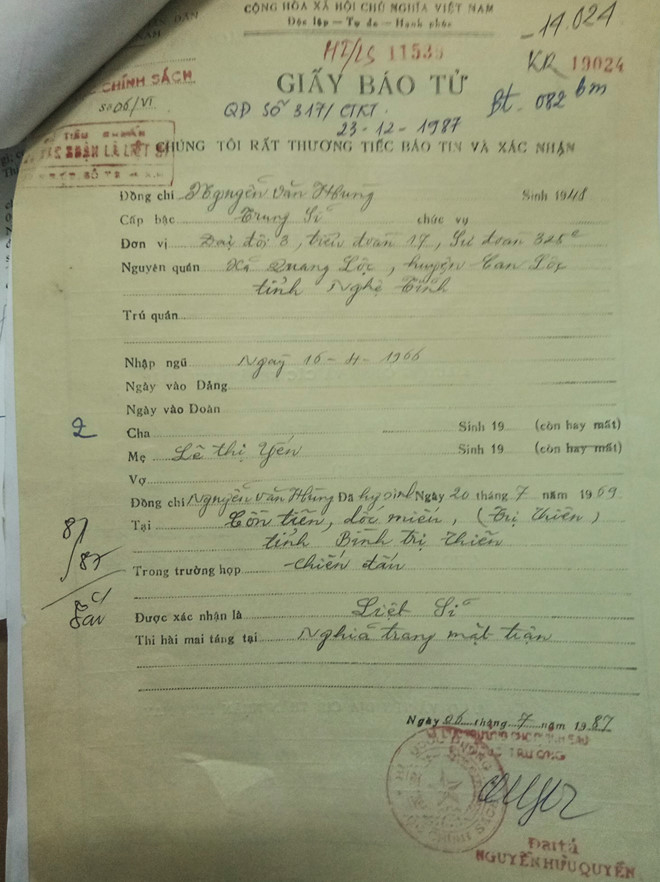 CỘNG HÒA XÃ HỘI CHỦ NGHĨA VIỆT NAM
Độc lập — Tự do — Hạnh phúc
-19.024
HT/LS 11539
KR 19024
CHÍNH SÁCH
Số 06/VI
GIẤY BÁO TỬ
QĐ SỐ 317/CTKT
23-12-1987
Bt. 082 bm
CHÚNG TÔI RẤT THƯƠNG TIẾC BÁO TIN VÀ XÁC NHẬN
Đồng chí Nguyễn Văn Hung Sinh 1948
Cấp bậc Trung Sĩ chức vụ
Đơn vị Đại đội 3, tiểu đoàn 17, Sư đoàn 325c
Nguyên quán Xã Quang Lộc, huyện Can Lộc
tỉnh Nghệ Tĩnh
Trú quán
Nhập ngũ Ngày 16-4-1966
Ngày vào Đảng
Ngày vào Đoàn
2
Cha Sinh 19 (còn hay mất)
Mẹ Lê Thị Yến Sinh 19 (còn hay mất)
Vợ
Đồng chí Nguyễn Văn Hùng Đã hy sinh Ngày 20 tháng 7 năm 1969
Tại Cồn tiên, dốc miếu, (Trị Thiên)
tỉnh Bình Trị Thiên
87/87
Trong trường hợp chiến đấu
Được xác nhận là Liệt Sĩ
Thi hài mai táng tại Nghĩa trang mặt trận
Ngày 06 tháng 7 năm 1987
Đại tá
NGUYỄN HỮU QUYỀN